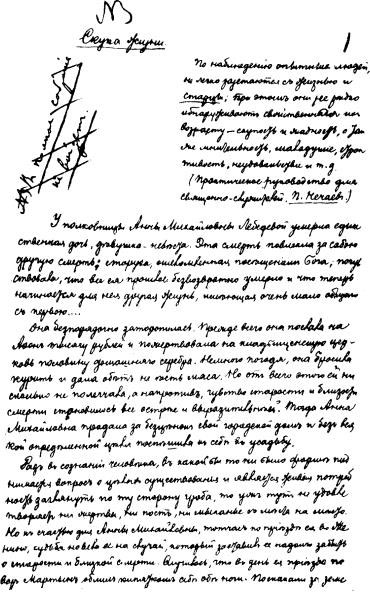 NB
Скука жизни.
1
По наблюдению опытных людей,
не легко расстаются съ жизнью и
старцы; при этомъ они не рѣдко
обнаруживаютъ свойственныя ихъ
возрасту — скупость и жадность, а так
же мнительность, малодушіе, строп
тивость, неудовольствіе и т. д
(Практическое руководство для
священно-служителей. П. Нечаев.)
У полковницы Анны Михайловны Лебедевой умерла един
ственная дочь, дѣвушка-невѣста. Эта смерть повлекла за собою
другую смерть: старуха, ошеломленная посѣщеніемъ Бога, почув
ствовала, что все ея прошлое безвозвратно умерло и что теперь
начинается для нея другая жизнь, имѣющая очень мало общаго
съ первою....
Она безпорядочно заторопилась. Прежде всего она послала на
Аѳонъ тысячу рублей и пожертвовала на кладбищенскую цер
ковь половину домашняго серебра. Немного погодя, она бросила
курить и дала обѣтъ не ѣсть мяса. Но отъ всего этого ей ни
сколько не полегчало, а напротивъ, чувство старости и близости
смерти становилось все острѣе и выразительнѣй. Тогда Анна
Михайловна продала за безцѣнокъ свой городской домъ и безъ вся
кой опредѣленной цѣли поспѣшила къ себѣ въ усадьбу.
Разъ въ сознаніи человѣка, въ какой бы то ни было формѣ, под
нимается вопросъ о цѣляхъ существованія и является живая потреб
ность заглянуть по ту сторону гроба, то ужъ тутъ не удовле
творяютъ ни жертва, ни постъ, ни мыканье съ мѣста на мѣсто.
Но къ счастью для Анны Михайловны, тотчасъ же по пріѣздѣ ея въ Же
нино, судьба навела ее на случай, который заставилъ ее надолго забыть
о старости и близкой смерти. Случилось, что въ день ея пріѣзда по
варъ Мартынъ облилъ кипяткомъ себѣ обѣ ноги. Поскакали за земс